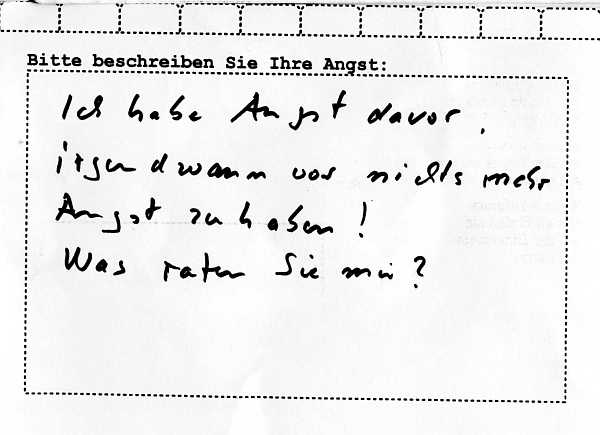 Bitte beschreiben Sie Ihre Angst:
Ich habe Angst davor,
irgendwann vor nichts mehr
Angst zu haben!
Was raten Sie mir?